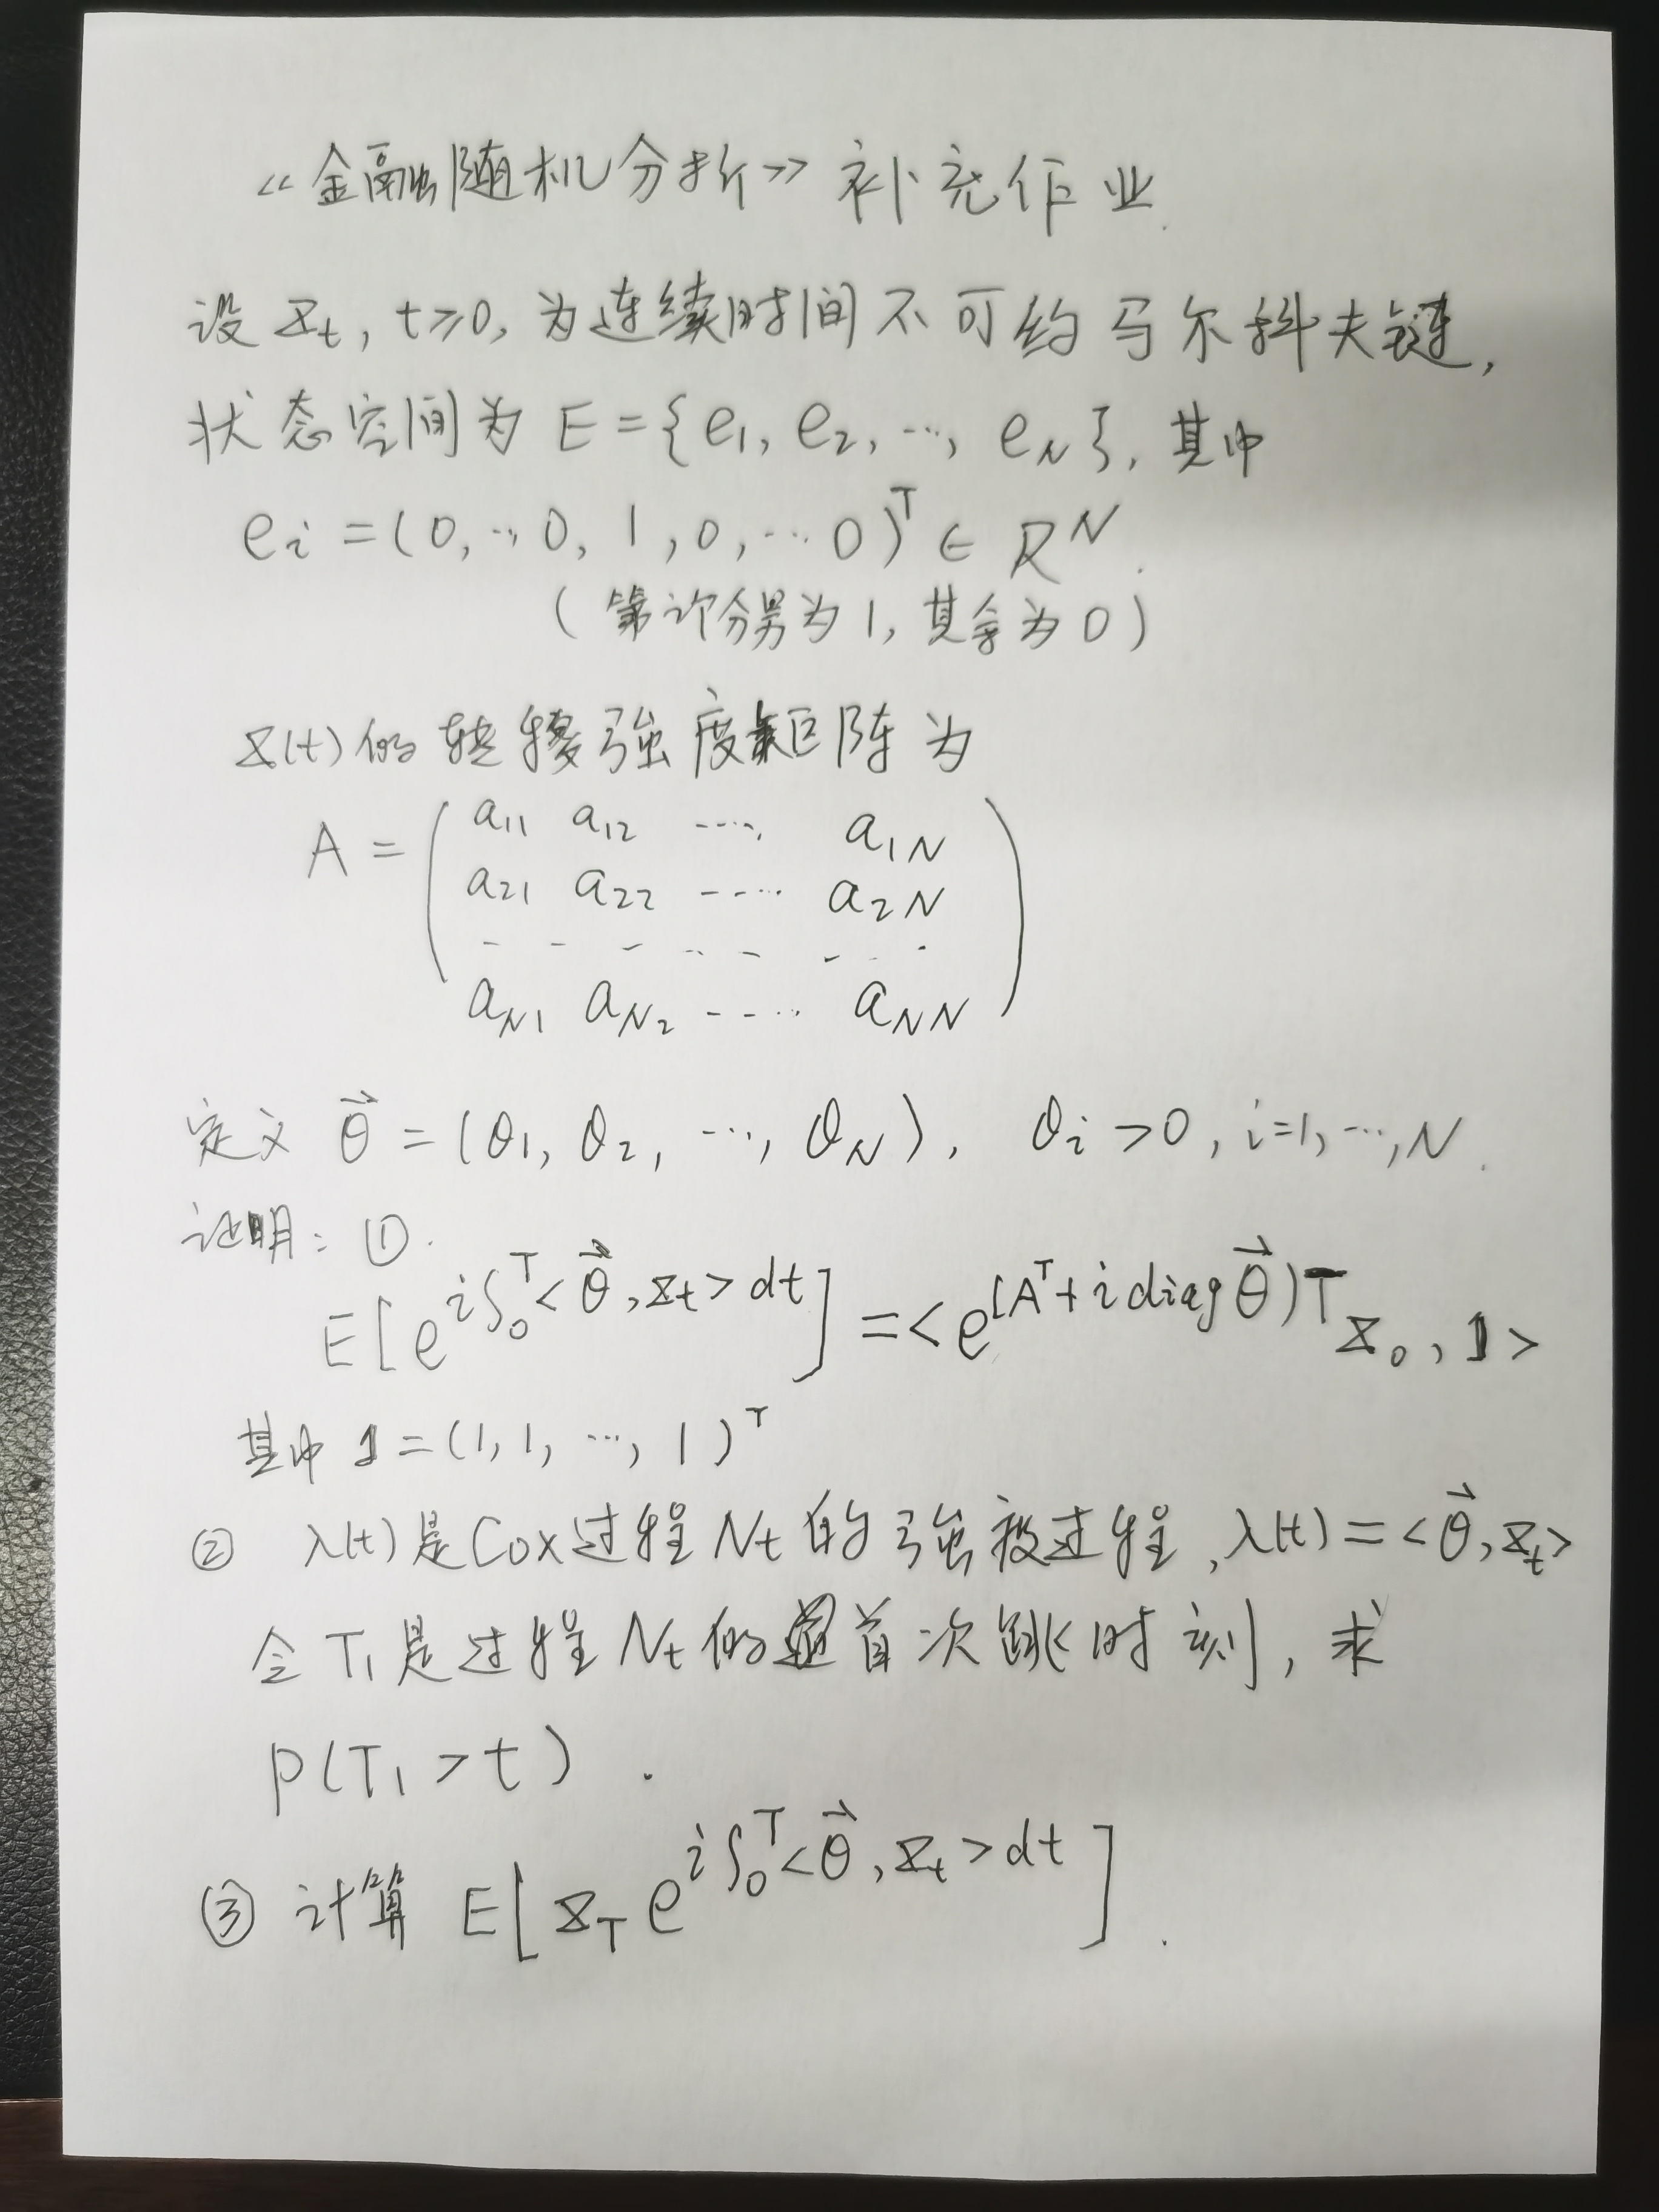 《金融随机分析》补充作业.
设 X_t, t≥0, 为连续时间不可约马尔科夫链,
状态空间为 E={e_1, e_2, …, e_N}, 其中
e_i = (0,…,0, 1, 0, …0)^T ∈ R^N.
(第i个分男为1, 其余为0)
X(t)的转移强度矩阵为
A = ( a_11 a_12 ---- a_1N
a_21 a_22 ---- a_2N
- - - - - - - -
a_N1 a_N2 ---- a_NN )
定义 \vec{θ} = (θ_1, θ_2, …, θ_N), θ_i > 0, i=1, …, N.
证明: ①.
E[e^{i∫_0^T <\vec{θ}, X_t> dt}] = <e^{(A^T + i diag \vec{θ})T} X_0, 1>
其中 1 = (1, 1, …, 1)^T
② λ(t)是Cox过程 N_t 的强度过程, λ(t) = <\vec{θ}, X_t>
令 T_1 是过程 N_t 的首次跳时刻, 求
P(T_1 > t).
③ 计算 E[X_T e^{i∫_0^T <\vec{θ}, X_t> dt}].